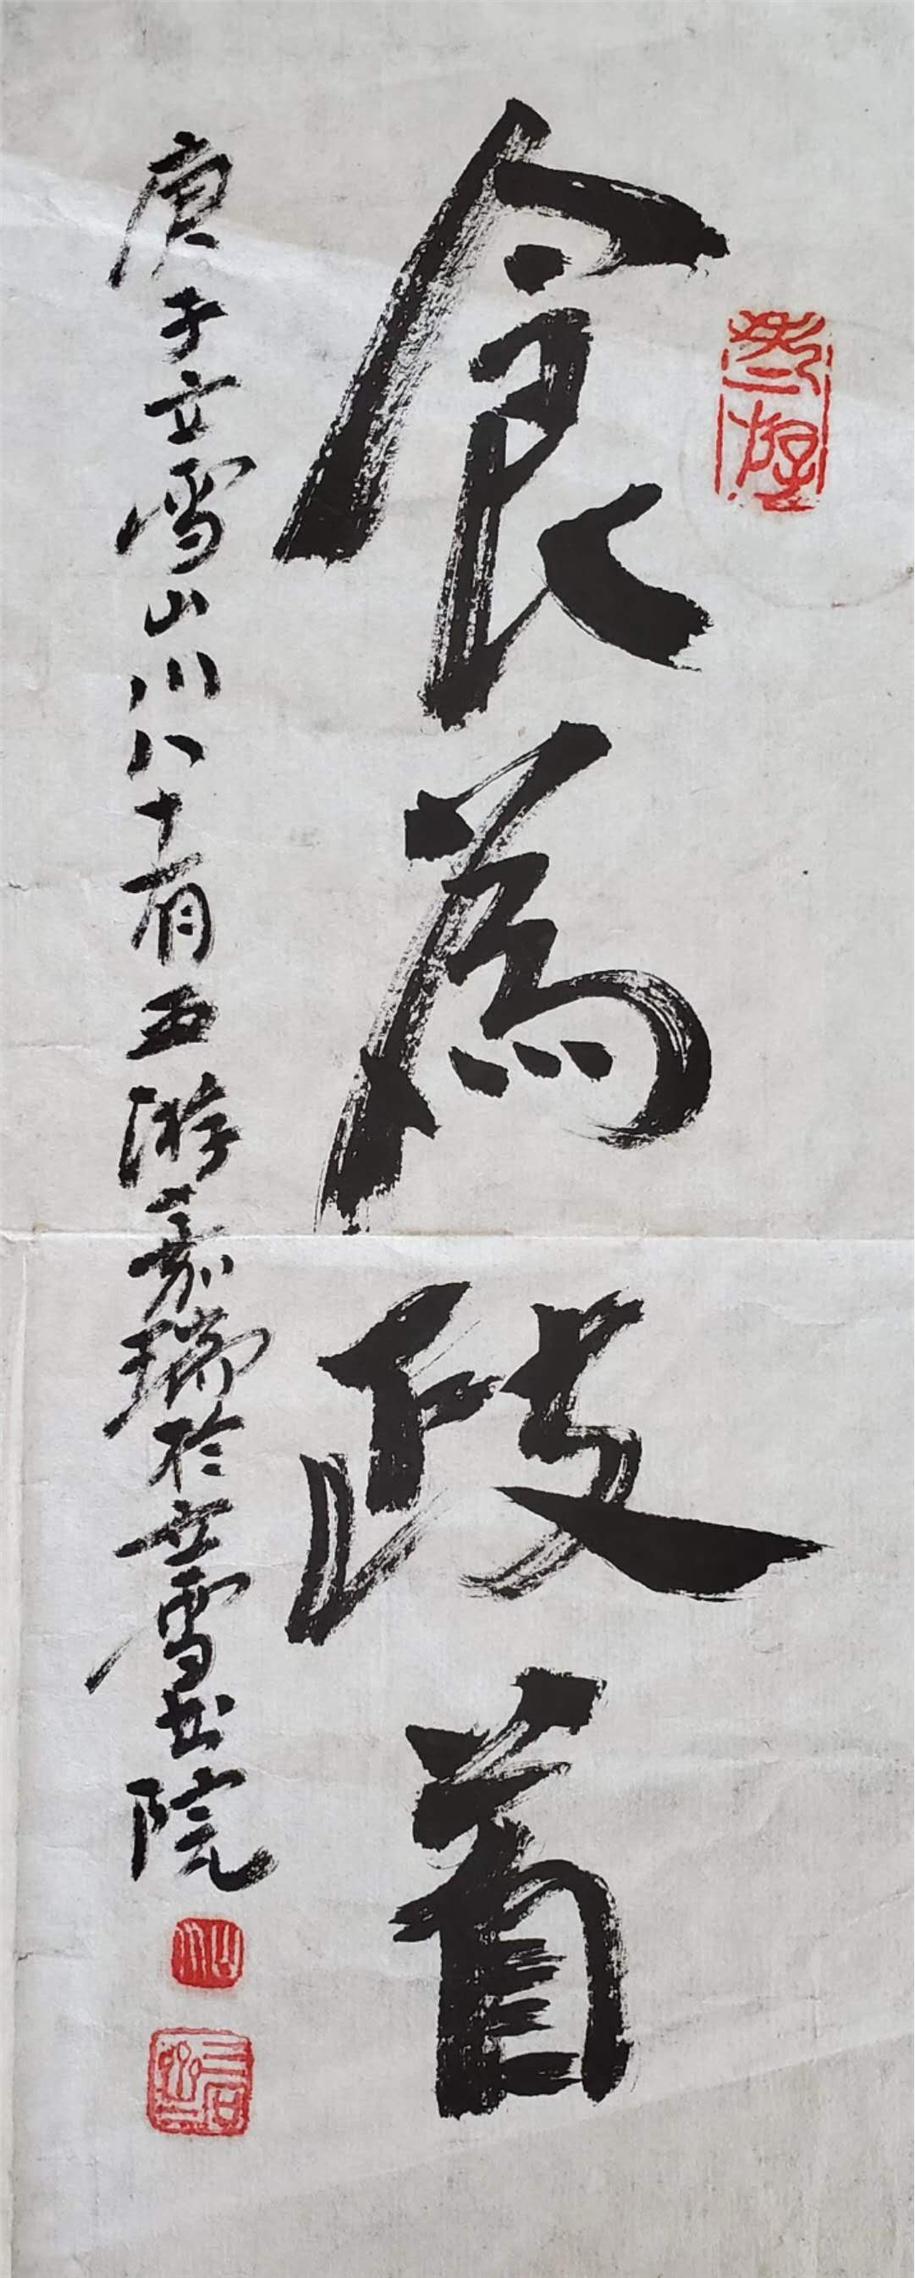 食為政首
庚子立雪山川八十有五游嘉瑞於立雪書院
山川